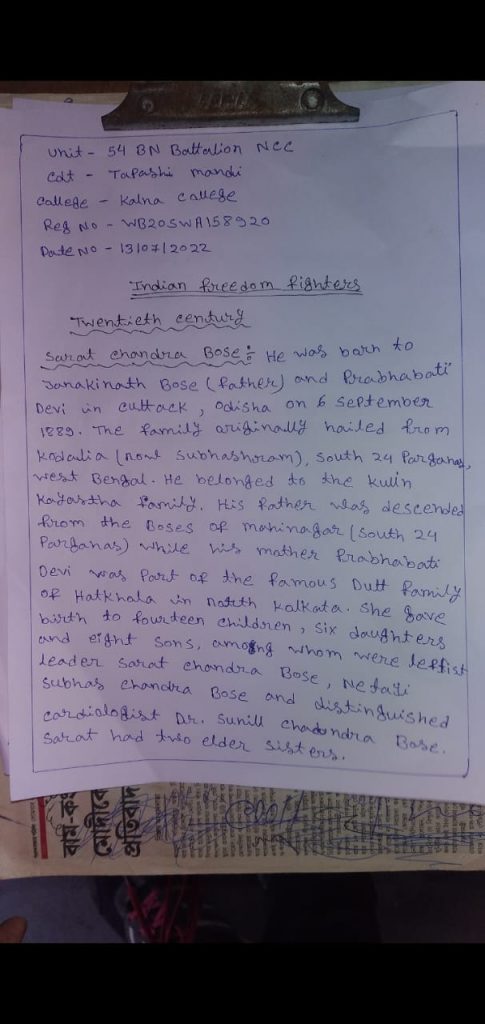 Unit - 54 BN Battalion NCC
Cdt - Tapashi mandi
College - Kalna College
Reg No - WB20SWA158920
Date No - 13/07/2022
Indian freedom fighters
Twentieth century
Sarat Chandra Bose :- He was born to
Janakinath Bose (father) and Prabhabati
Devi in cuttack, Odisha on 6 September
1889. The family originally hailed from
Kodalia (now Subhashgram), South 24 Parganas,
West Bengal. He belonged to the Kulin
Kayastha family. His father was descended
from the Boses of Mahinagar (South 24
Parganas) while his mother Prabhabati
Devi was part of the famous Dutt family
of Hatkhola in north Kolkata. She gave
birth to fourteen children, six daughters
and eight sons, among whom were leffist
leader Sarat Chandra Bose, Netaji
Subhas Chandra Bose and distinguished
cardiologist Dr. Sunill Chandra Bose.
Sarat had two elder sisters.
বাম-কং
মোদীকে
প্রতিবাদ